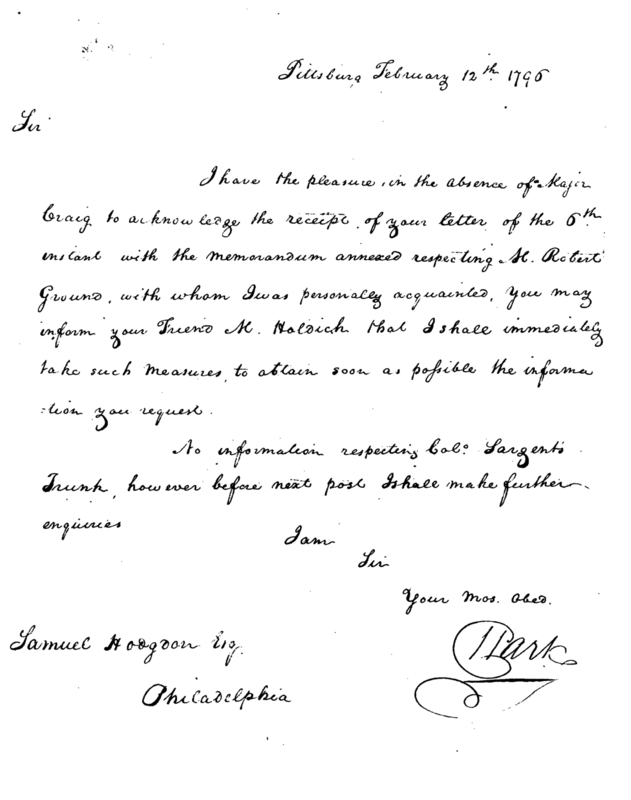 Pittsburg February 12th 1796
Sir
I have the pleasure, in the absence of Major
Craig to acknowledge the receipt of your letter of the 6th
instant with the memorandum annexed respecting M. Robert
Ground, with whom I was personally acquainted, You may
inform your Friend M. Holdich that I shall immediately
take such Measures, to obtain soon as possible the informa
:tion you request.
No information respecting Colo. Sargents
Trunk, however before next post I shall make further
enquiries
I am
Sir
Your Mos. Obed.
Samuel Hodgdon Esq.
Philadelphia